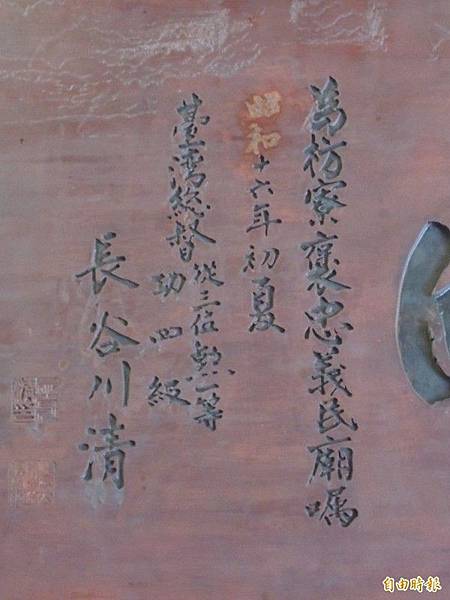 為枋寮褒忠義民廟嘱
昭和十六年初夏
臺灣総督從三位勲一等
功四級
長谷川清
自由時報